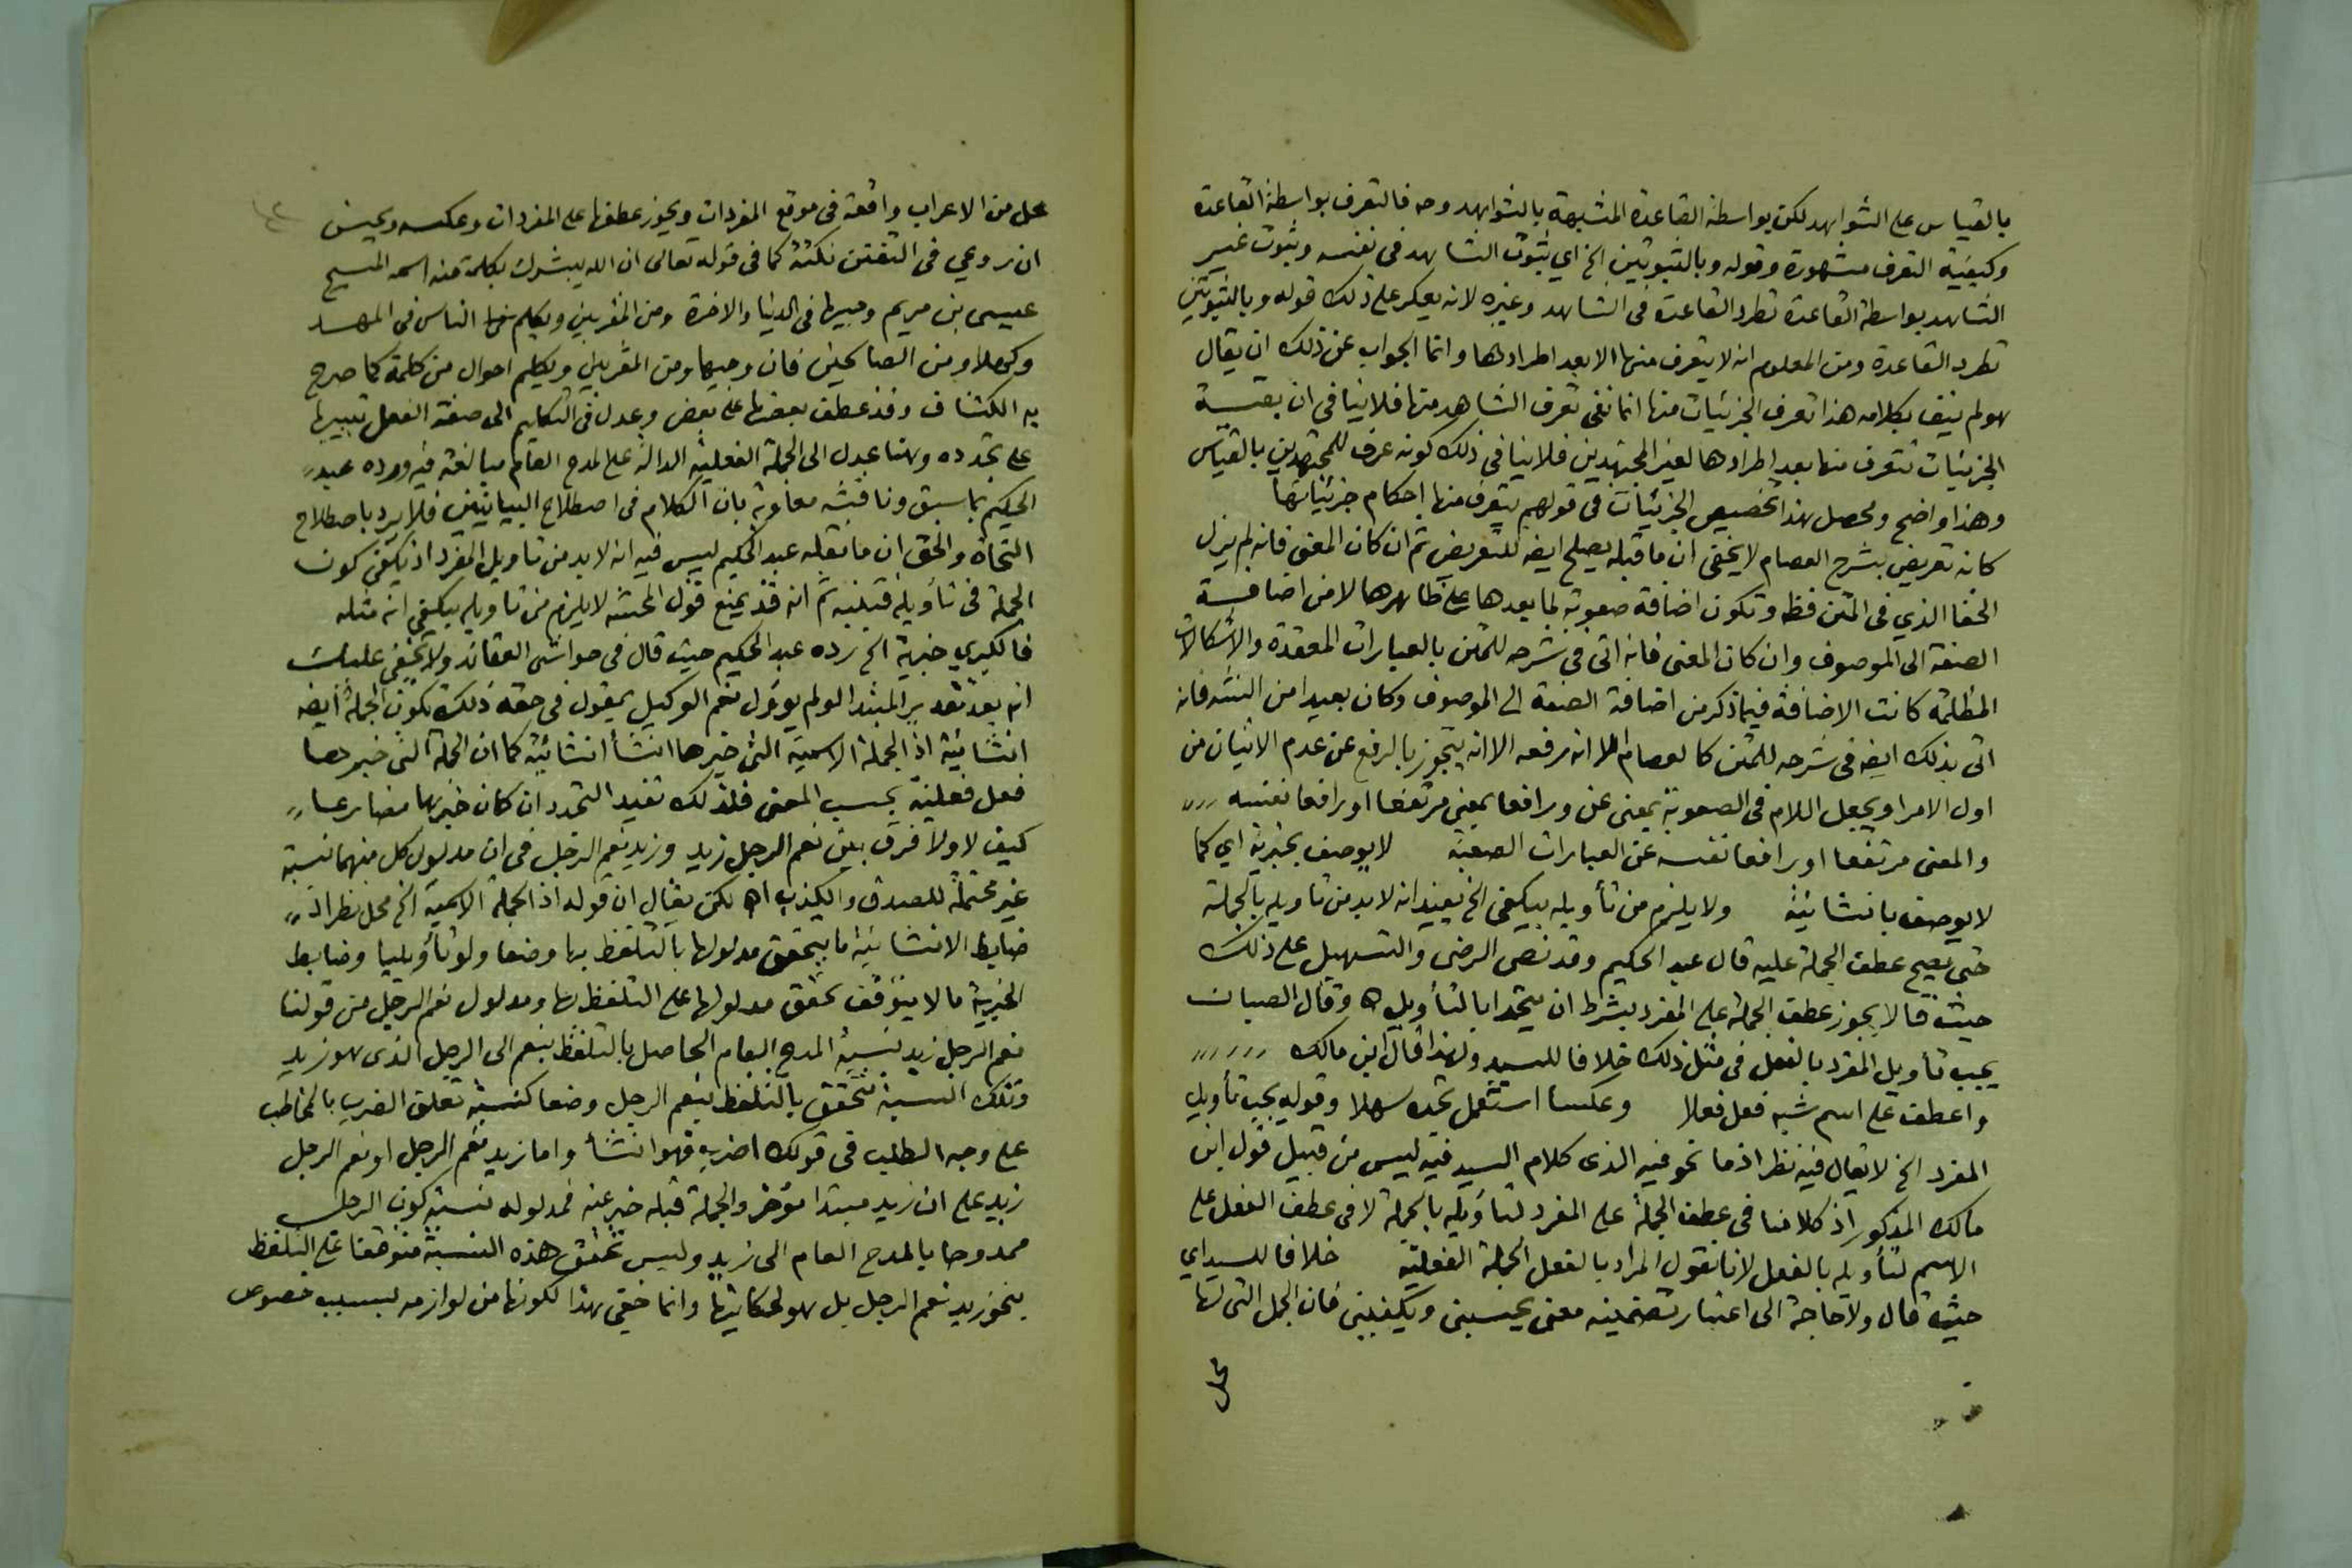 بالقياس على الشواهد لكن بواسطة القاعدة المشبهة بالشواهد وحه فالتعرف بواسطة القاعدة
وكيفية التعرف مشهورة وقوله وبالثبوتين الخ اي ثبوت الشاهد في نفسه وثبوت غير
الشاهد بواسطة القاعدة تطرد القاعدة في الشاهد وغيره لانه يعكر على ذلك قوله وبالثبوتين
تطرد القاعدة ومن المعلوم انه لا يتعرف منها الا بعد اطرادها وانما الجواب عن ذلك ان يقال
هو لم ينف بكلامه هذا تعرف الجزئيات منها انما نفى تعرف الشاهد منها فلا ينافي ان بقية
الجزئيات تتعرف منها بعد اطرادها لغير المجتهدين فلا ينافي ذلك كونه عرف للمجتهدين بالقياس
وهذا واضح ومحصل هذا تخصيص الجزئيات في قولهم يتعرف منها احكام جزئياتها
كانه تعريض بشرح العصام لا يخفى ان ما قبله يصلح ايضه للتعريض ثم ان كان المعنى فانه لم يزل
الخفا الذي في المتن فظ وتكون اضافة صعوبة لما بعدها على ظاهرها لا من اضافة
الصفة الى الموصوف وان كان المعنى فانه اتى في شرحه للمتن بالعبارات المعقدة والاشكالات
المظلمة كانت الاضافة فيما ذكر من اضافة الصفة الى الموصوف وكان بعيدا من النشه فانه
اتى بذلك ايضه في شرحه للمتن كالعصام الا انه رفعه الا انه يتجوز بالرفع عن عدم الاتيان من
اول الامر او يجعل اللام في الصعوبة بمعنى عن ورافعا بمعنى مرتفعا او رافعا نفسه
والمعنى مرتفعا او رافعا نفسه عن العبارات الصعبة لا يوصف بخبرية اي كما
لا يوصف بانشائية ولا يلزم من تأويله بيكفي الخ يفيد انه لا بد من تاويله بالجملة
حتى يصح عطف الجملة عليه قال عبد الحكيم وقد نص الرضى والتسهيل على ذلك
حيث قالا يجوز عطف الجملة على المفرد بشرط ان يتحدا بالتأويل اه وقال الصبان
يجب تأويل المفرد بالفعل في مثل ذلك خلافا للسيد ولهذا قال ابن مالك
واعطف على اسم شبه فعل فعلا وعكسا استعمل تجده سهلا وقوله يجب تأويل
المفرد الخ لا يقال فيه نظر اذ ما نحو فيه الذي كلام السيد فيه ليس من قبيل قول ابن
مالك المذكور اذ كلامنا في عطف الجملة على المفرد لتاويله بالجملة لا في عطف الفعل على
الاسم لتأويله بالفعل لانا نقول المراد بالفعل الجملة الفعلية خلافا للسيد اي
حيث قال ولا حاجة الى اعتبار تضمينه معنى يحسبني ويكفيني فان الجمل التي لها
محل
محل من الاعراب واقعة في موقع المفردات ويجوز عطفها على المفردات وعكسه ويحسن
ان روعي في التفنن نكتة كما في قوله تعالى ان الله يبشرك بكلمة منه اسمه المسيح
عيسى بن مريم وجيها في الدنيا والاخرة ومن المقربين ويكلم الناس في المهد
وكهلا ومن الصالحين فان وجيها ومن المقربين ويكلم احوال من كلمة كما صرح
به الكشاف وقد عطف بعضها على بعض وعدل في التكليم الى صيغة الفعل تنبيها
على تجدده وهنا عدل الى الجملة الفعلية الدالة على المدح العام مبالغة فيه ورده عبد
الحكيم بما سبق وناقشه معاوية بان الكلام في اصطلاح البيانيين فلا يرد باصطلاح
النحاة والحق ان ما نقله عبد الحكيم ليس فيه انه لا بد من تاويل المفرد اذ يكفي كون
الجملة في تأويله ثم انه قد يمنع قول المحشه لا يلزم من تاويله بيكفي انه مثله
فالكبرى خبرية الخ رده عبد الحكيم حيث قال في حواشى العقائد ولا يخفى عليك
انه بعد تقدير المبتدا لو لم يوؤل نعم الوكيل بمقول في حقه ذلك تكون الجملة ايضه
انشائية اذ الجملة الاسمية التي خبرها انشأ انشائية كما ان الجملة التي خبرها
فعل فعلية بحسب المعنى فلذلك تفيد التجدد ان كان خبرها مضارعا
كيف لا ولا فرق بين نعم الرجل زيد وزيد نعم الرجل في ان مدلول كل منهما نسبة
غير محتملة للصدق والكذب اه لكن يقال ان قوله اذ الجملة الاسمية الخ محل نظر اذ
ضابط الانشائية ما يتحقق مدلولها بالتلفظ بها وضعا ولو تأويليا وضابط
الخبرية ما لا يتوقف تحقق مدلولها على التلفظ بها ومدلول نعم الرجل من قولنا
نعم الرجل زيد نسبة المدح العام الحاصل بالتلفظ بنعم الى الرجل الذي هو زيد
وتلك النسبة تتحقق بالتلفظ بنعم الرجل وضعا كنسبة تعلق الضرب بالمخاطب
على وجه الطلب في قولك اضرب فهو انشأ واما زيد نعم الرجل او نعم الرجل
زيد على ان زيد مبتدا مؤخر والجملة قبله خبر عنه فمدلوله نسبة كون الرجل
ممدوحا بالمدح العام الى زيد وليس تحقق هذه النسبة متوقفا على التلفظ
بنحو زيد نعم الرجل بل هو لحكايتها وانما خفي هذا لكونها من لوازمه بسبب خصوص